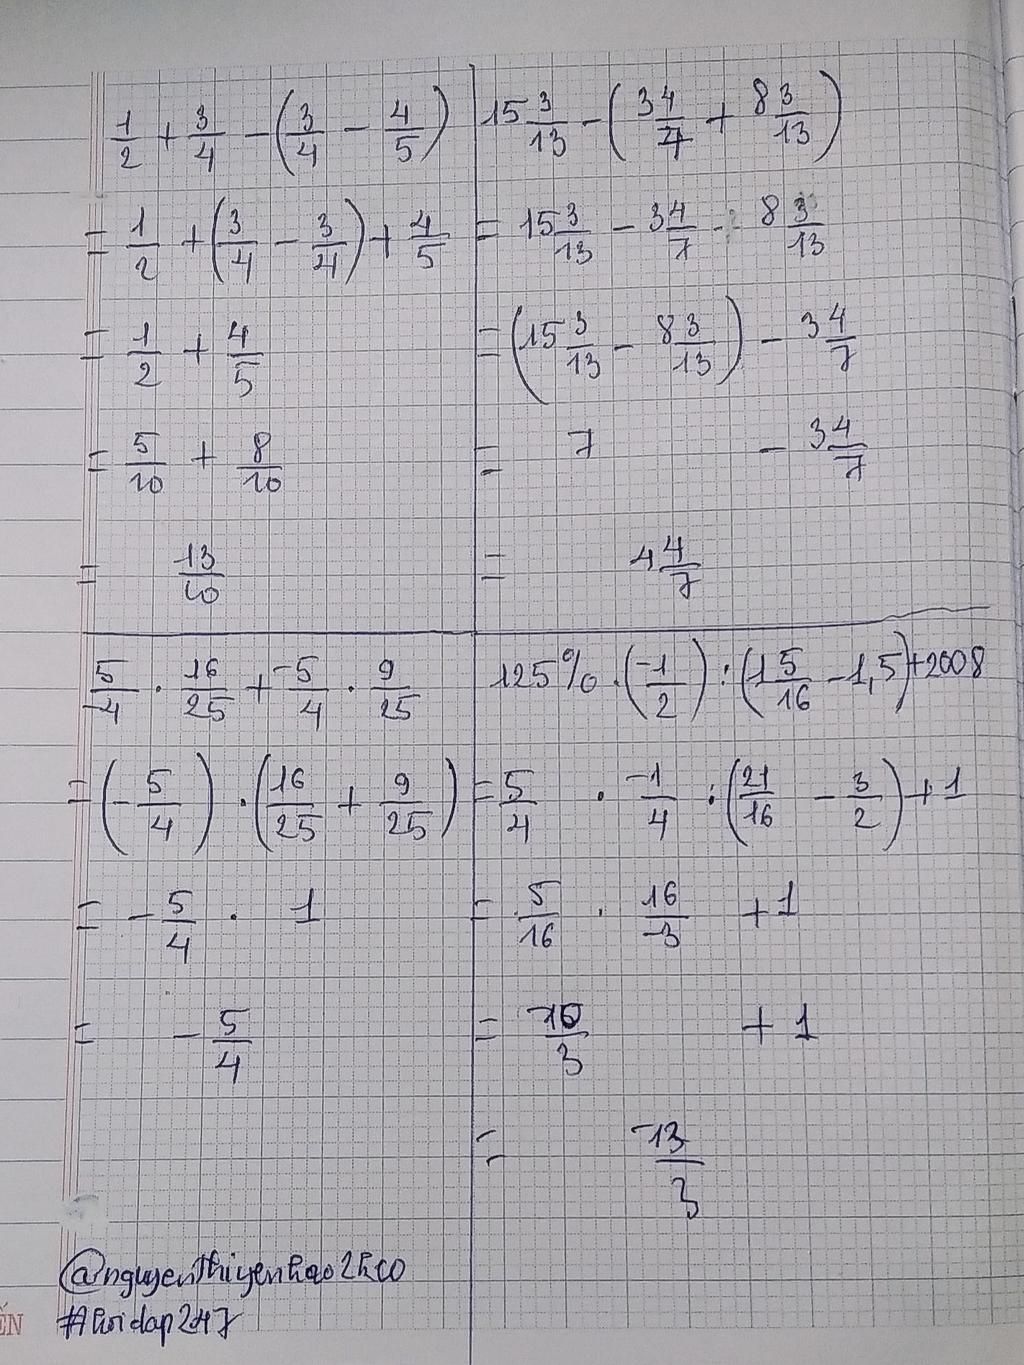 1/2 + 3/4 - (3/4 - 4/5)
= 1/2 + (3/4 - 3/4) + 4/5
= 1/2 + 4/5
= 5/10 + 8/10
= 13/10
15 3/13 - (3 4/7 + 8 3/13)
= 15 3/13 - 3 4/7 - 8 3/13
= (15 3/13 - 8 3/13) - 3 4/7
= 7 - 3 4/7
= 4 4/7
5/-4 . 16/25 + -5/4 . 9/25
= (-5/4) . (16/25 + 9/25)
= -5/4 . 1
= -5/4
125% . (-1/2) : (1 5/16 - 1,5) + 2008
= 5/4 . -1/4 : (21/16 - 3/2) + 1
= 5/16 . 16/-3 + 1
= -10/3 + 1
= -13/3
@nguyenthiyenhao2hco
#hoidap247
ẾN